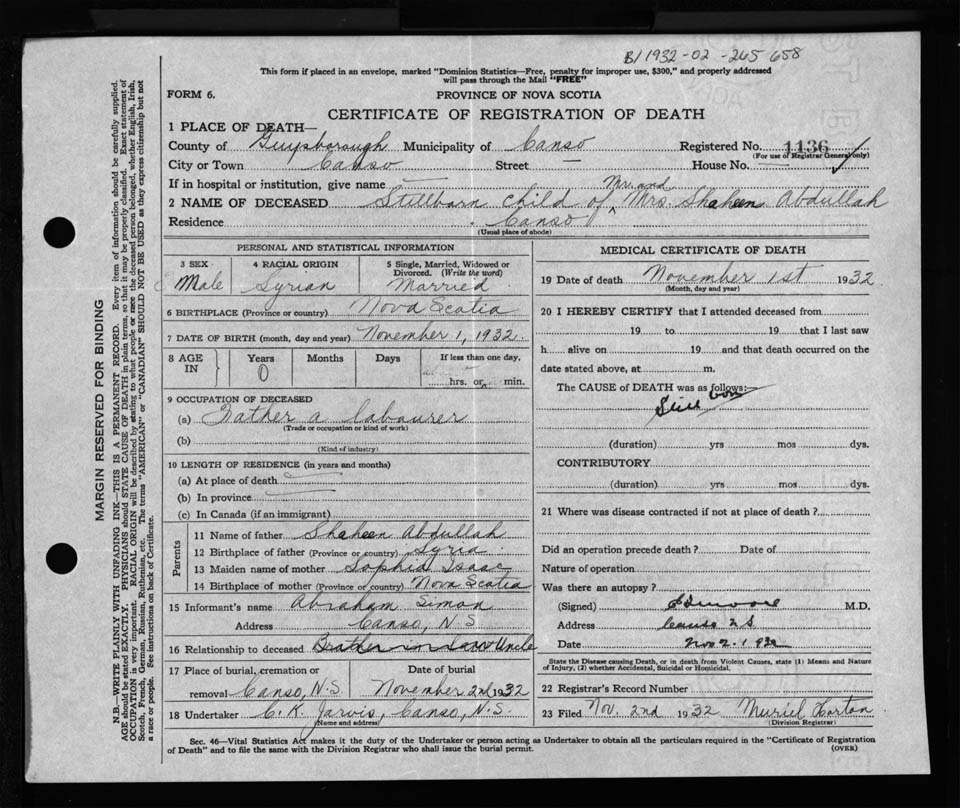 B/1932-02-265 658
This form if placed in an envelope, marked "Dominion Statistics—Free, penalty for improper use, $300," and properly addressed
will pass through the Mail "FREE"
FORM 6.
PROVINCE OF NOVA SCOTIA
CERTIFICATE OF REGISTRATION OF DEATH
1 PLACE OF DEATH—
County of Guysborough Municipality of Canso Registered No. 1136
(For use of Registrar General only)
City or Town Canso Street — House No. —
If in hospital or institution, give name —
Mr. and
2 NAME OF DECEASED Stillborn child of Mrs. Shaheen Abdullah
Residence Canso
(Usual place of abode)
PERSONAL AND STATISTICAL INFORMATION
3 SEX Male
4 RACIAL ORIGIN Syrian
5 Single, Married, Widowed or Divorced. (Write the word) Married
6 BIRTHPLACE (Province or country) Nova Scotia
7 DATE OF BIRTH (month, day and year) November 1, 1932.
8 AGE IN Years 0 Months Days If less than one day, hrs. or min.
9 OCCUPATION OF DECEASED
(a) Father a labourer
(Trade or occupation or kind of work)
(b)
(Kind of industry)
10 LENGTH OF RESIDENCE (in years and months)
(a) At place of death
(b) In province
(c) In Canada (if an immigrant)
Parents
11 Name of father Shaheen Abdullah
12 Birthplace of father (Province or country) Syria
13 Maiden name of mother Sophia Isaac
14 Birthplace of mother (Province or country) Nova Scotia
15 Informant's name Abraham Simon
Address Canso, N.S
16 Relationship to deceased Brother in law Uncle
17 Place of burial, cremation or Date of burial
removal Canso, N.S. November 2nd 1932
18 Undertaker C. K. Jarvis, Canso, N.S.
(Name and address)
MEDICAL CERTIFICATE OF DEATH
19 Date of death November 1st 1932
(Month, day and year)
20 I HEREBY CERTIFY that I attended deceased from
19 to 19 that I last saw
h alive on 19 and that death occurred on the
date stated above, at m.
The CAUSE OF DEATH was as follows:—
Still born
(duration) yrs mos dys.
CONTRIBUTORY
(duration) yrs mos dys.
21 Where was disease contracted if not at place of death?
Did an operation precede death? Date of
Nature of operation
Was there an autopsy?
(Signed) M.D.
Address Canso N S
Date Nov 2. 1932
State the Disease causing Death, or in death from Violent Causes, state (1) Means and Nature
of Injury, (2) whether Accidental, Suicidal or Homicidal.
22 Registrar's Record Number
23 Filed Nov. 2nd 1932 Muriel Horton
(Division Registrar)
Sec. 46—Vital Statistics Act makes it the duty of the Undertaker or person acting as Undertaker to obtain all the particulars required in the "Certificate of Registration
of Death" and to file the same with the Division Registrar who shall issue the burial permit.
(OVER)
MARGIN RESERVED FOR BINDING
N.B.—WRITE PLAINLY WITH UNFADING INK—THIS IS A PERMANENT RECORD. Every item of information should be carefully supplied.
AGE should be stated EXACTLY. PHYSICIANS should STATE CAUSE OF DEATH in plain terms, so that it may be properly classified. Exact statement of
OCCUPATION is very important. RACIAL ORIGIN will be described by stating to what people or race the deceased person belonged, whether English, Irish,
Scotch, French, German, Russian, Ruthenian, etc. The terms "AMERICAN" or "CANADIAN" SHOULD NOT BE USED as they express citizenship but not
a race or people. See instructions on back of Certificate.